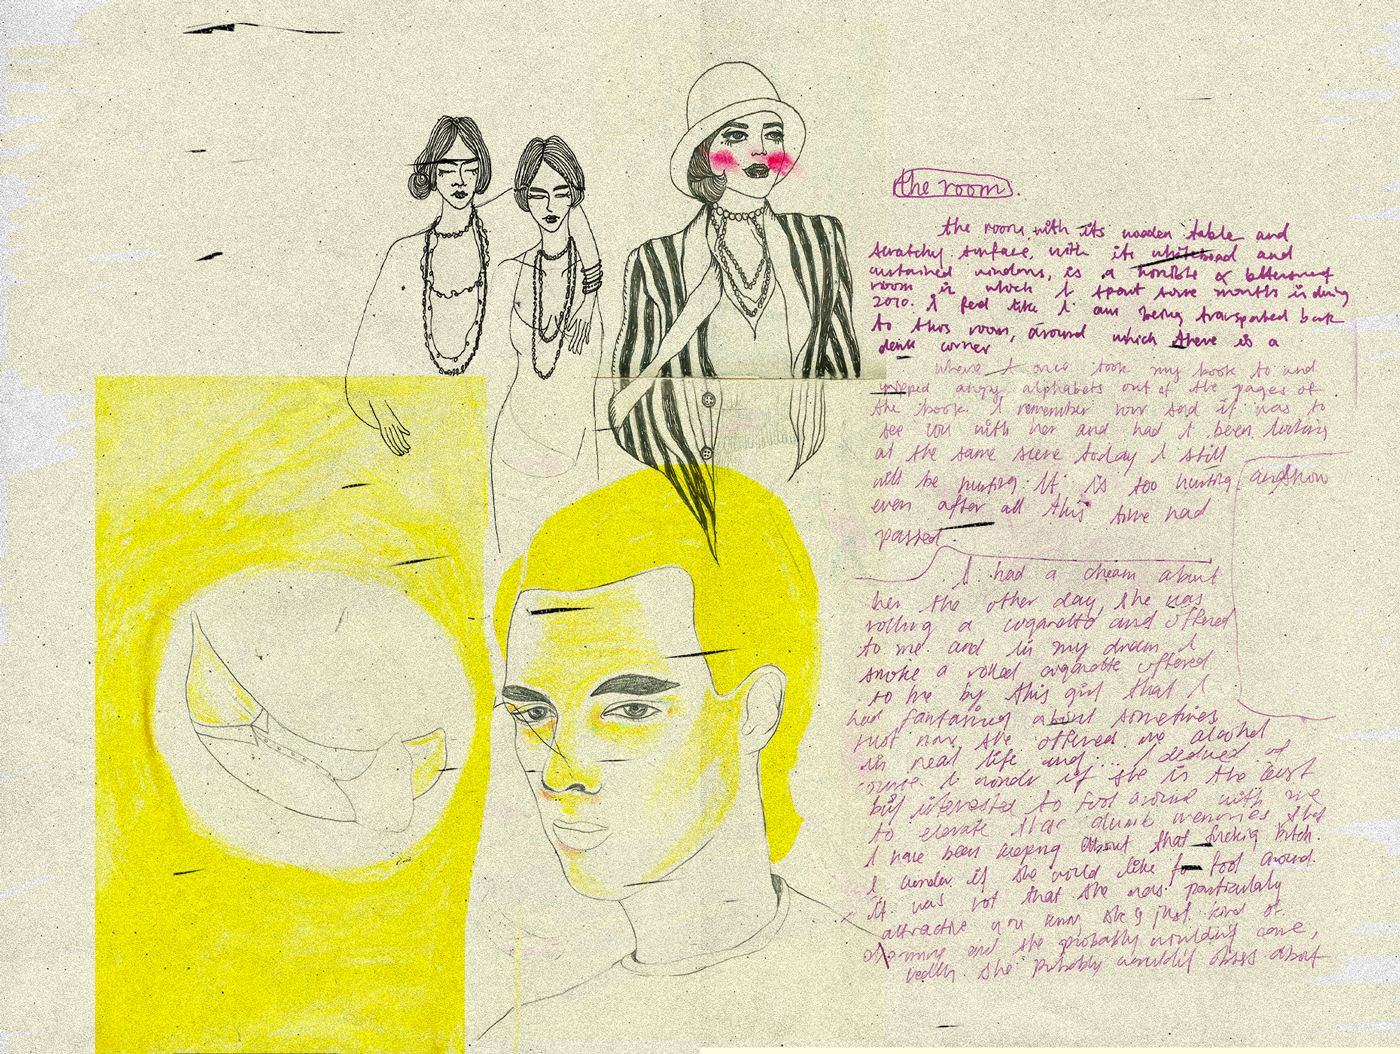 the room.
the room with its wooden table and
scratchy surface, with its whiteboard and
curtained windows, is a horrible & bittersweet
room in which I spent some months in during
2010. I feel like I am being transported back
to this room, around which there is a
dark corner
where I once took my book to and
ripped angry alphabets out of the pages of
the book. I remember how sad it was to
see you with her and had I been looking
at the same scene today I still
will be hurting. It is too hurting, and how
even after all this time had
passed.
I had a dream about
her the other day, she was
rolling a cigarette and offered
to me and in my dream I
smoke a rolled cigarette offered
to me by this girl that I
had fantasing about sometimes
just now she offered me alcohol
in real life and... I deduced of
I wonder if she is the least
bit interested to fool around with me
to elevate these memories that
I have been keeping about that fucking bitch.
I wonder if she would like to fool around.
it was not that she was particularly
attractive you know she's just kind of
charming and she probably wouldn't care,
really. she probably wouldn't obsess about